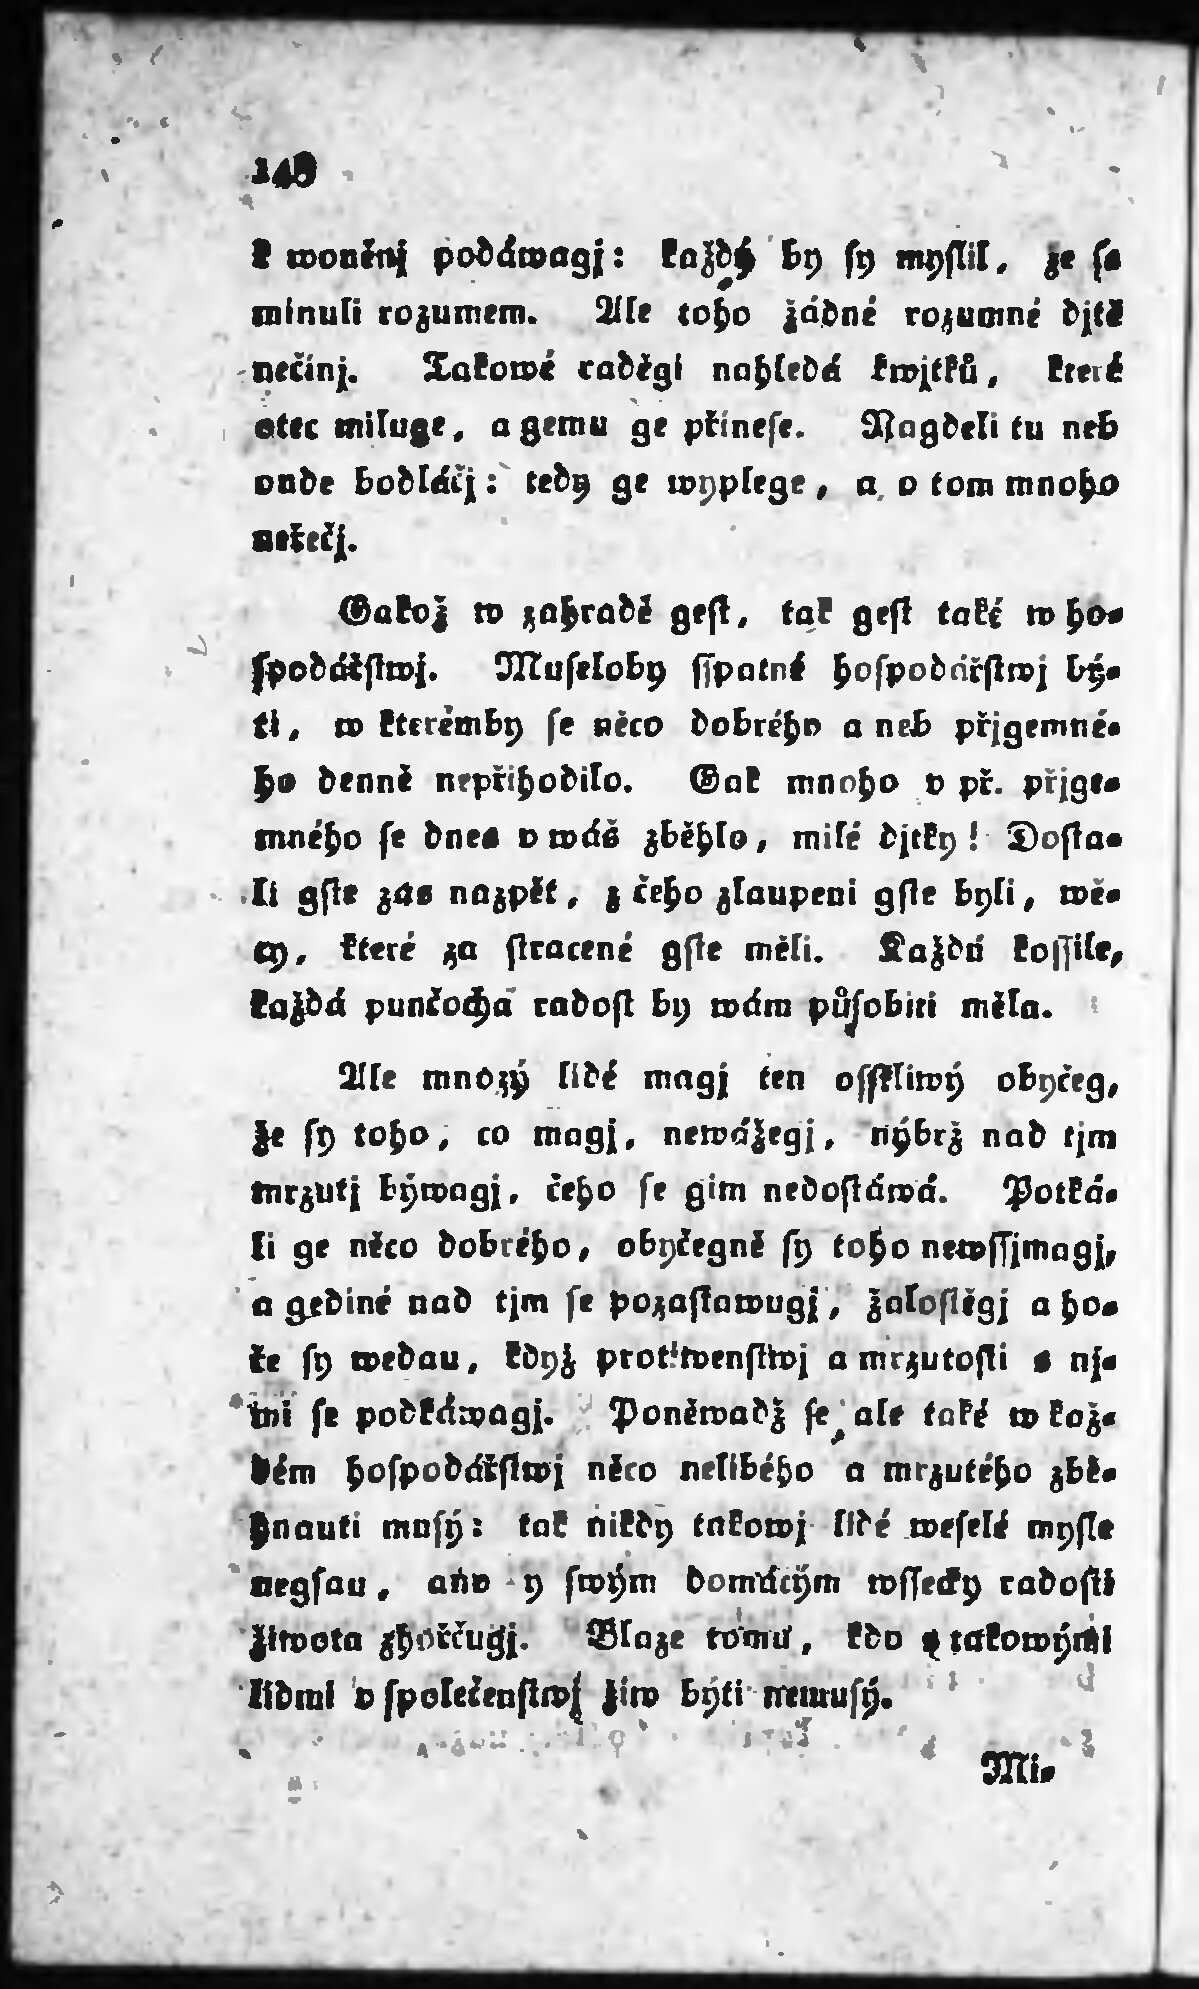 140
k woněnj podáwagj: každý by sy myslil, že se
minuli rozumem. Ale toho žádné rozumné djtě
nečinj. Takowé raděgi nahledá kwjtků, které
otec miluge, a gemu ge přinese. Nagdeli tu neb
onde bodláčj: tedy ge wyplege, a o tom mnoho
neřečj.
Gakož w zahradě gest, tak gest také w ho-
spodářstwj. Museloby sspatné hospodářstwj bý-
ti, w kterémby se něco dobrého a neb přjgemné-
ho denně nepřihodilo. Gak mnoho v př. přjge-
mného se dnes v wás zběhlo, milé djtky! Dosta-
li gste zas nazpět, z čeho zlaupeni gste byli, wě-
cy, které za stracené gste měli. Každá kossile,
každá punčocha radost by wám působiti měla.
Ale mnozý lidé magj ten osskliwý obyčeg,
že sy toho, co magj, newážegj, nýbrž nad tjm
mrzutj býwagj, čeho se gim nedostáwá. Potká-
li ge něco dobrého, obyčegně sy toho newssjmagj,
a gediné nad tjm se pozastawugj, žalostěgj a ho-
ře sy wedau, když protiwenstwj a mrzutosti s ni-
mi se podkáwagj. Poněwadž se ale také w kaž-
dém hospodářstwj něco nelibého a mrzutého zbě-
hnauti musý: tak nikdy takowj lidé weselé mysle
negsau, ano y swým domácým wssecky radosti
žiwota zhořčugj. Blaze tomu, kdo s takowými
lidmi v společenstwj žiw býti nemusý.
Mi-